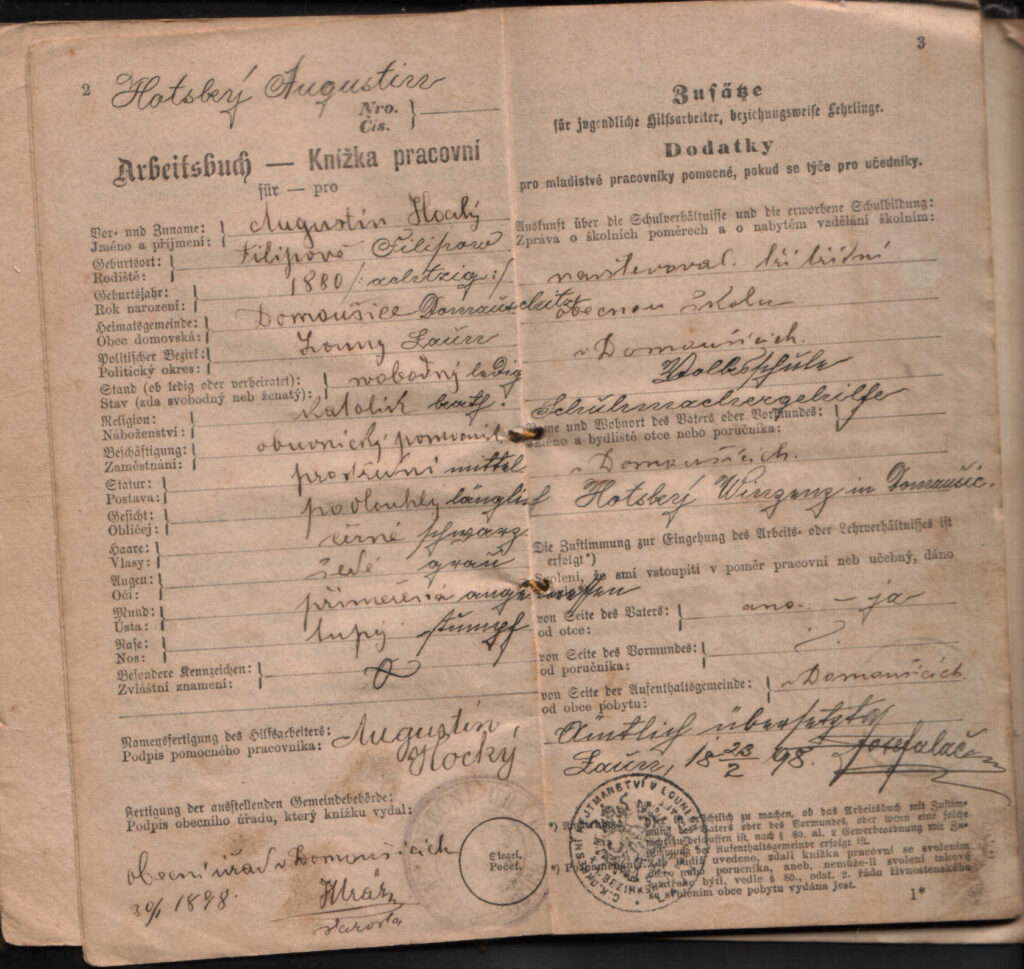 2
Hotský Augustin
Nro.
Čís.
Arbeitsbuch — Knížka pracovní
für — pro
Vor- und Zuname:
Jméno a příjmení:
Augustin Hocký
Geburtsort:
Rodiště:
Filipově Filipow
Geburtsjahr:
Rok narození:
1880 /: achtzig :/
Heimatsgemeinde:
Obec domovská:
Domoušice Domauschitz
Politischer Bezirk:
Politický okres:
Louny Laun
Stand (ob ledig oder verheiratet):
Stav (zda svobodný neb ženatý):
svobodný ledig
Religion:
Náboženství:
katolik kath.
Beschäftigung:
Zaměstnání:
obuvnický pomocník Schuhmachergehilfe
Statur:
Postava:
prostřední mittel
Gesicht:
Obličej:
podlouhlý länglich
Haare:
Vlasy:
černé schwarz
Augen:
Oči:
šedé grau
Mund:
Ústa:
přiměřená angemessen
Nase:
Nos:
tupý stumpf
Besondere Kennzeichen:
Zvláštní znamení:
Namensfertigung des Hilfsarbeiters:
Podpis pomocného pracovníka:
Augustin
Hocký
Fertigung der ausstellenden Gemeindebehörde:
Podpis obecního úřadu, který knížku vydal:
obecní úřad v Domoušicích
30/1 1898.
Mráz
starosta
Siegel.
Pečeť.
3
Zusätze
für jugendliche Hilfsarbeiter, beziehungsweise Lehrlinge.
Dodatky
pro mladistvé pracovníky pomocné, pokud se týče pro učedníky.
Auskunft über die Schulverhältnisse und die erworbene Schulbildung:
Zpráva o školních poměrech a o nabytém vzdělání školním:
navštěvoval tří třídní
obecnou školu
v Domoušicích.
Volksschule
Name und Wohnort des Vaters oder Vormundes:
Jméno a bydliště otce nebo poručníka:
v Domoušicích.
Hotský Winzenz in Domaušic.
Die Zustimmung zur Eingehung des Arbeits- oder Lehrverhältnisses ist
erfolgt*)
Svolení, že smí vstoupiti v poměr pracovní neb učebný, dáno
von Seite des Vaters:
od otce:
ano. — ja
von Seite des Vormundes:
od poručníka:
von Seite der Aufenthaltsgemeinde:
od obce pobytu:
v Domoušicích
Ämtlich übersetzt
Laun, 18 23/2 98.
*) ersichtlich zu machen, ob das Arbeitsbuch mit Zustim-
mung des Vaters oder des Vormundes, oder wenn eine solche
zu beschaffen ist, nach § 80, al. 2 Gewerbeordnung mit Zu-
der Aufenthaltsgemeinde erfolgt ist.
*) budiž uvedeno, zdali knížka pracovní se svolením
otce nebo poručníka, aneb, nemůže-li svolení takové
býti, vedle § 80., odst. 2. řádu živnostenského
se svolením obce pobytu vydána jest.
1*